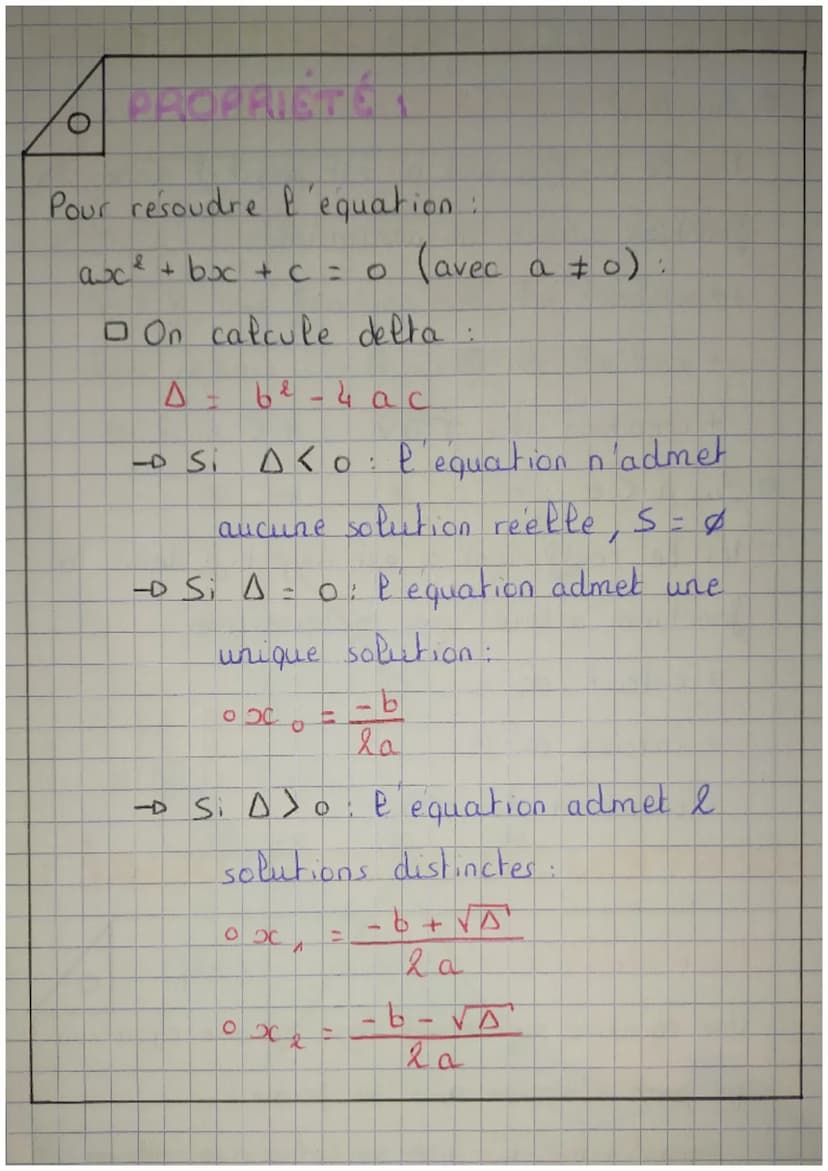 PROPRIÉTÉ :
Pour résoudre l'équation :
ax² + bx + c = 0 (avec a ≠ 0) :
□ On calcule delta :
Δ = b² - 4 a c
→ Si Δ < 0 : l'équation n'admet
aucune solution réelle, S = ∅
→ Si Δ = 0 : l'équation admet une
unique solution :
o x₀ = -b / 2a
→ Si Δ > 0 : l'équation admet 2
solutions distinctes :
o x₁ = -b + √Δ / 2a
o x₂ = -b - √Δ / 2a